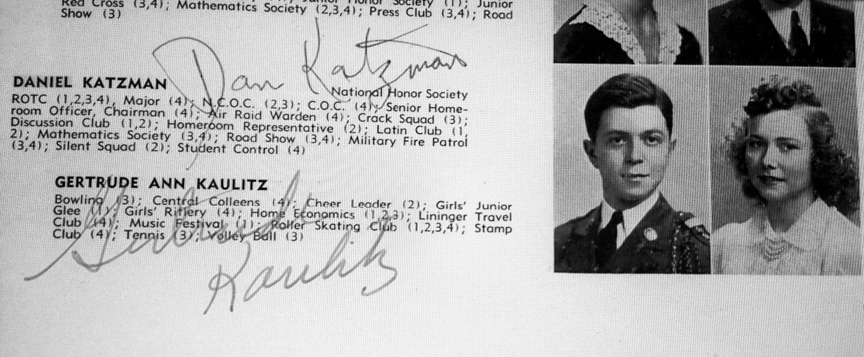 Red Cross (3,4); Mathematics Society (2,3,4); Press Club (3,4); Road
Show (3)
Dan Katzman
DANIEL KATZMAN
National Honor Society
ROTC (1,2,3,4), Major (4); N.C.O.C. (2,3); C.O.C. (4); Senior Home-
room Officer, Chairman (4); Air Raid Warden (4); Crack Squad (3);
Discussion Club (1,2); Homeroom Representative (2); Latin Club (1,
2); Mathematics Society (3,4); Road Show (3,4); Military Fire Patrol
(3,4); Silent Squad (2); Student Control (4)
GERTRUDE ANN KAULITZ
Bowling (3); Central Colleens (4); Cheer Leader (2); Girls' Junior
Glee (1); Girls' Riflery (4); Home Economics (1,2,3); Lininger Travel
Club (4); Music Festival (1); Roller Skating Club (1,2,3,4); Stamp
Club (4); Tennis (3); Volley Ball (3)
Kaulitz